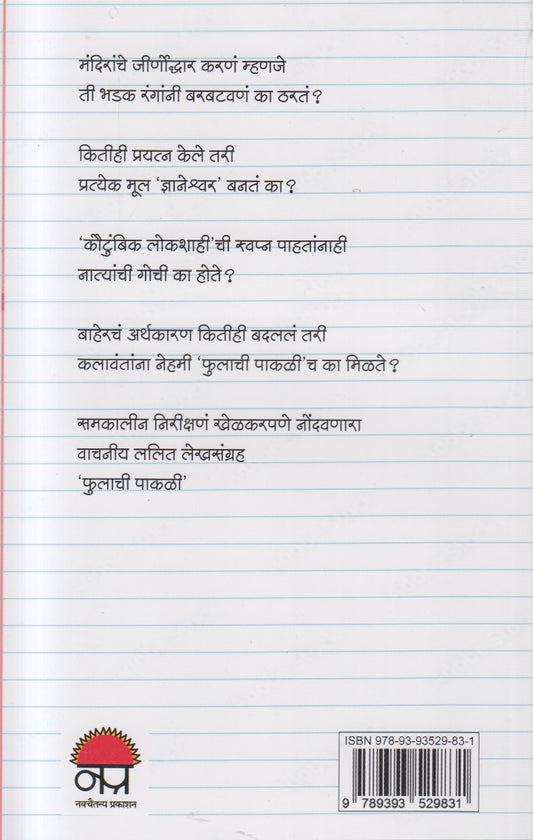 मंदिरांचे जीर्णोद्धार करणं म्हणजे
ती भडक रंगांनी बरबटवणं का ठरतं?
कितीही प्रयत्न केले तरी
प्रत्येक मूल ‘ज्ञानेश्वर’ बनतं का?
‘कौटुंबिक लोकशाही’ची स्वप्न पाहतांनाही
नात्यांची गोची का होते?
बाहेरचं अर्थकारण कितीही बदललं तरी
कलावंतांना नेहमी ‘फुलाची पाकळी’च का मिळते?
समकालीन निरीक्षणं खेळकरपणे नोंदवणारा
वाचनीय ललित लेखसंग्रह
‘फुलाची पाकळी’
नप्र
नवचैतन्य प्रकाशन
ISBN 978-93-93529-83-1
9 789393 529831